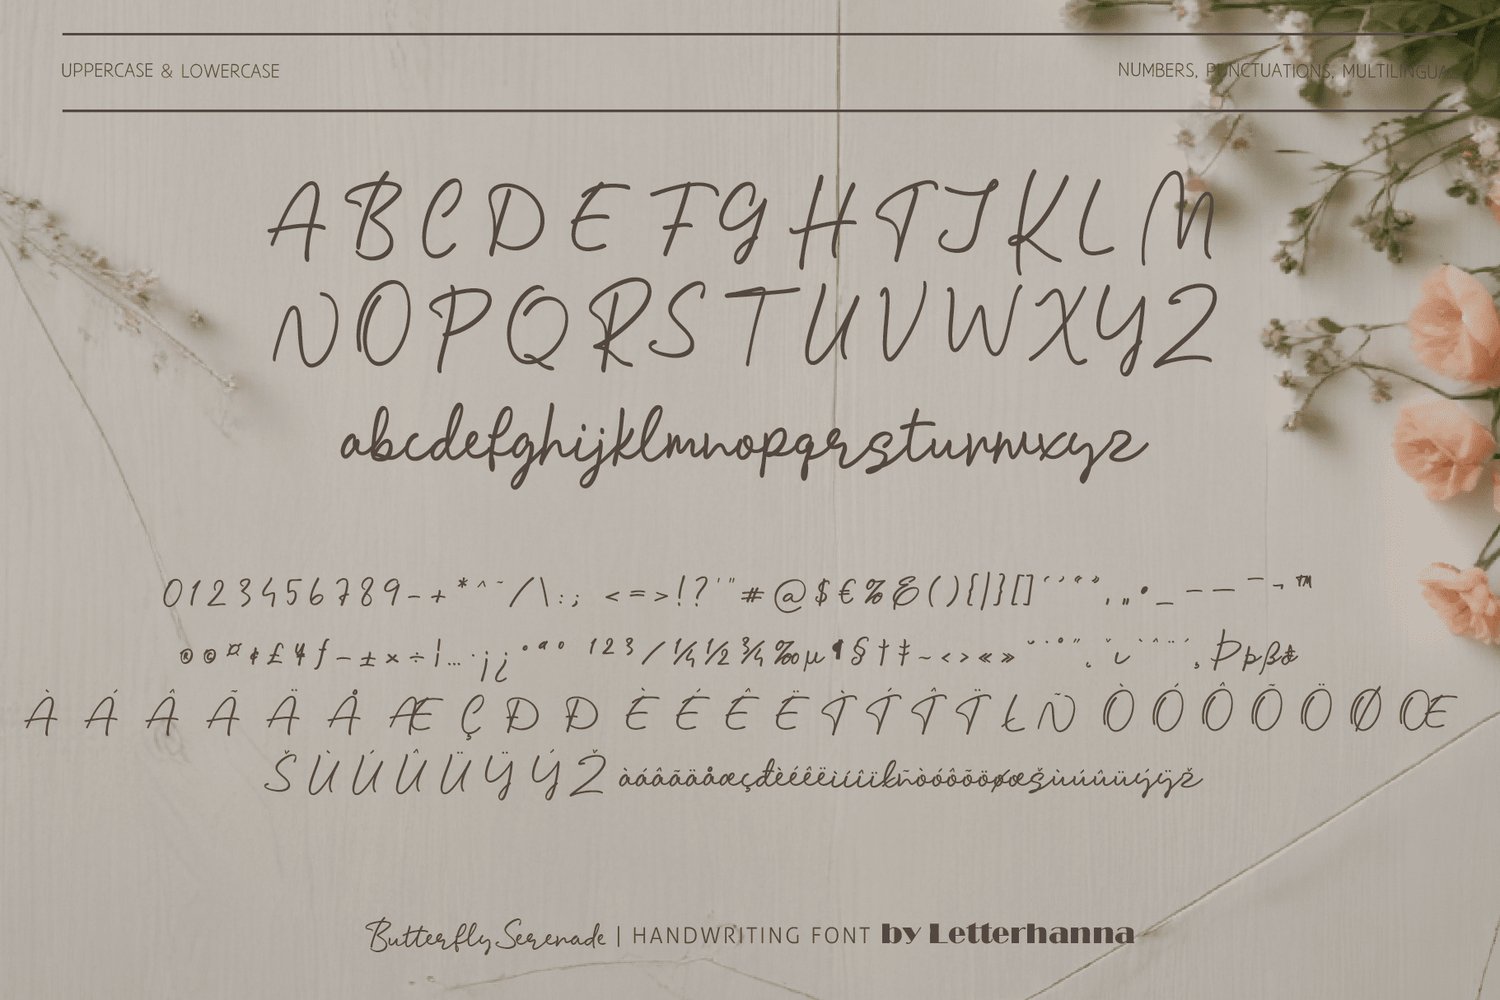 UPPERCASE & LOWERCASE
NUMBERS, PUNCTUATIONS, MULTILINGUAL
A B C D E F G H I J K L M
N O P Q R S T U V W X Y Z
abcdefghijklmnopqrstuvwxyz
0 1 2 3 4 5 6 7 8 9 - + * ^ ~ / \ : ; < = > ! ? ' " # @ $ € % & ( ) { | } [ ] ‘ ’ “ ” , „ • _ – — ¯ ¬ ™
® © ¤ ¢ £ ¥ ƒ − ± × ÷ ¦ … · ¡ ¿ ° ª º ¹ ² ³ ⁄ ¼ ½ ¾ ‰ µ ¶ § † ‡ ~ ‹ › « » Þ þ ß
À Á Â Ã Ä Å Æ Ç Ð Đ È É Ê Ë Ì Í Î Ï Ł Ñ Ò Ó Ô Õ Ö Ø Œ
Š Ù Ú Û Ü Ÿ Ý Ž àáâãäåæçđèéêëìíîïłñòóôõöøœšùúûüýÿž
Butterfly Serenade | HANDWRITING FONT by Letterhanna